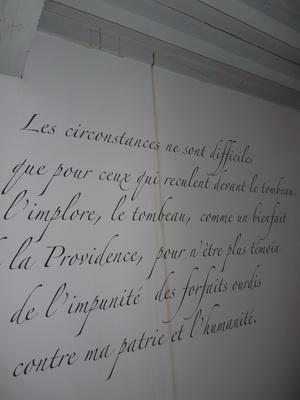 Les circonstances ne sont difficiles
que pour ceux qui reculent devant le tombeau.
l'implore, le tombeau, comme un bienfait
la Providence, pour n'être plus témoin
de l'impunité des forfaits ourdis
contre ma patrie et l'humanité.